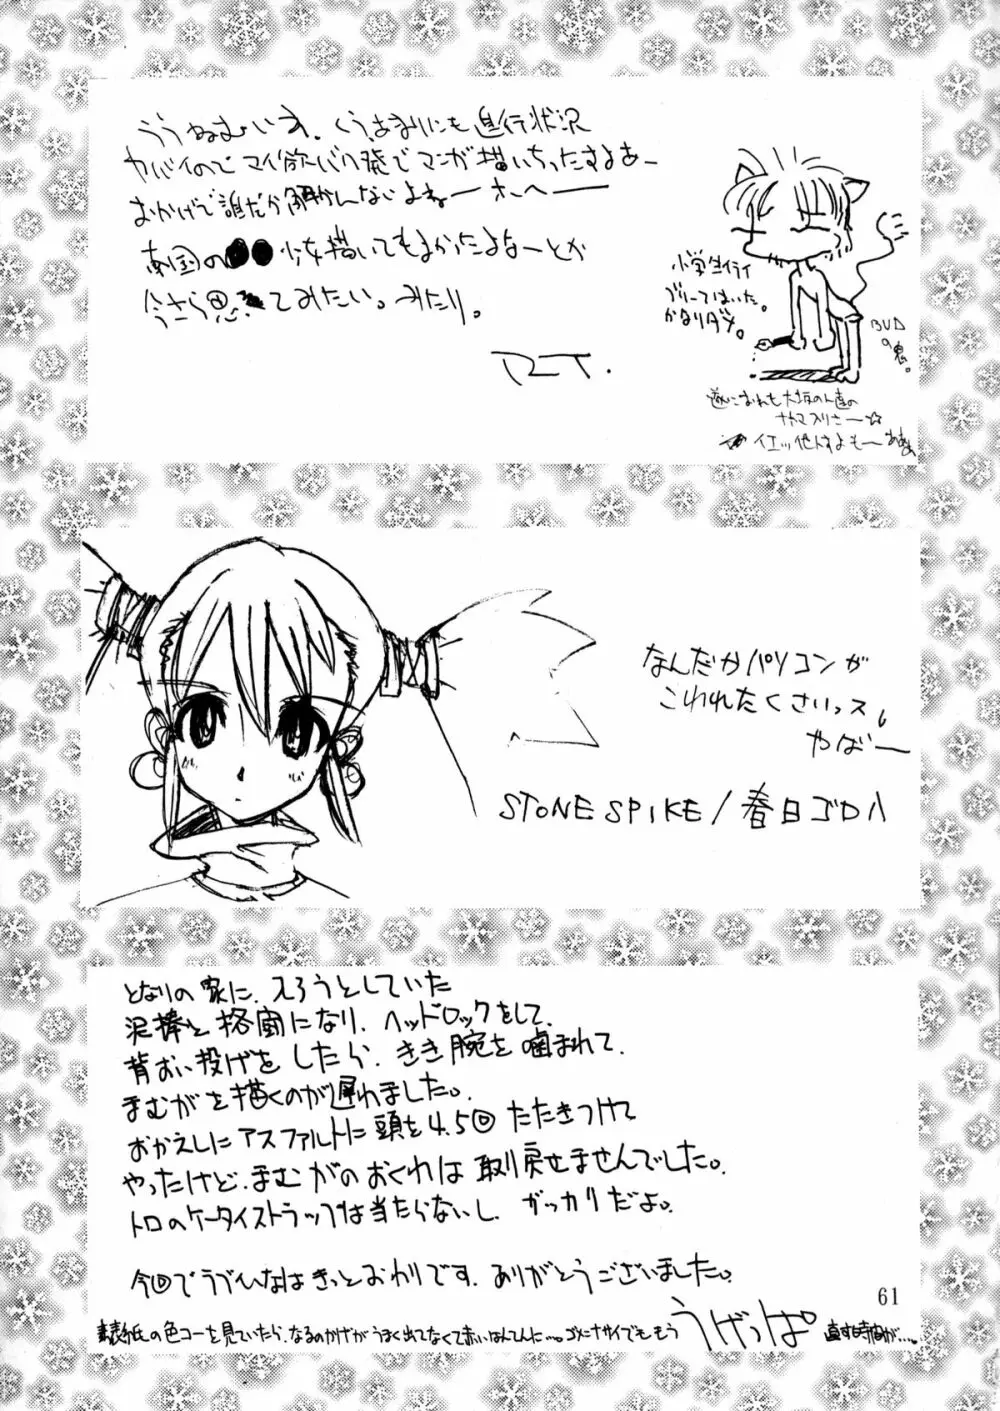 ううねむいす、くうあまりにも進行状況
ヤバイので マイ欲バク発でマンガ描いちったすよあー
おかげで誰だか解かんないよねーホヘー
南国の●●少女描いてもよかったよなーとか
今さら思ってみたい。みたり。
小学生イライ
かなりダメ。
遂におれも大坂の人達の
なんだかパソコンが
こわれたくさいっス。
やばー
STONE SPIKE / 春日ゴロ八
となりの家に、えろうとしていた
泥棒と格闘になり、ヘッドロックをして、
背おい投げをしたら、きき腕を噛まれて、
まむがを描くのが遅れました。
おかえしにアスファルトに頭を4.5回たたきつけて
やったけど、まむがのおくれは取り戻せませんでした。
トロのケータイストラップは当たらないし、ガッカリだよ。
今回でラブひなはきっとおわりです。ありがとうございました。
61
うげっぱ
表紙の色コーを見ていたら、なるのかげがうまく出てなくて赤いはんてんに…。ゴメンナサイでももう直す時間が…。